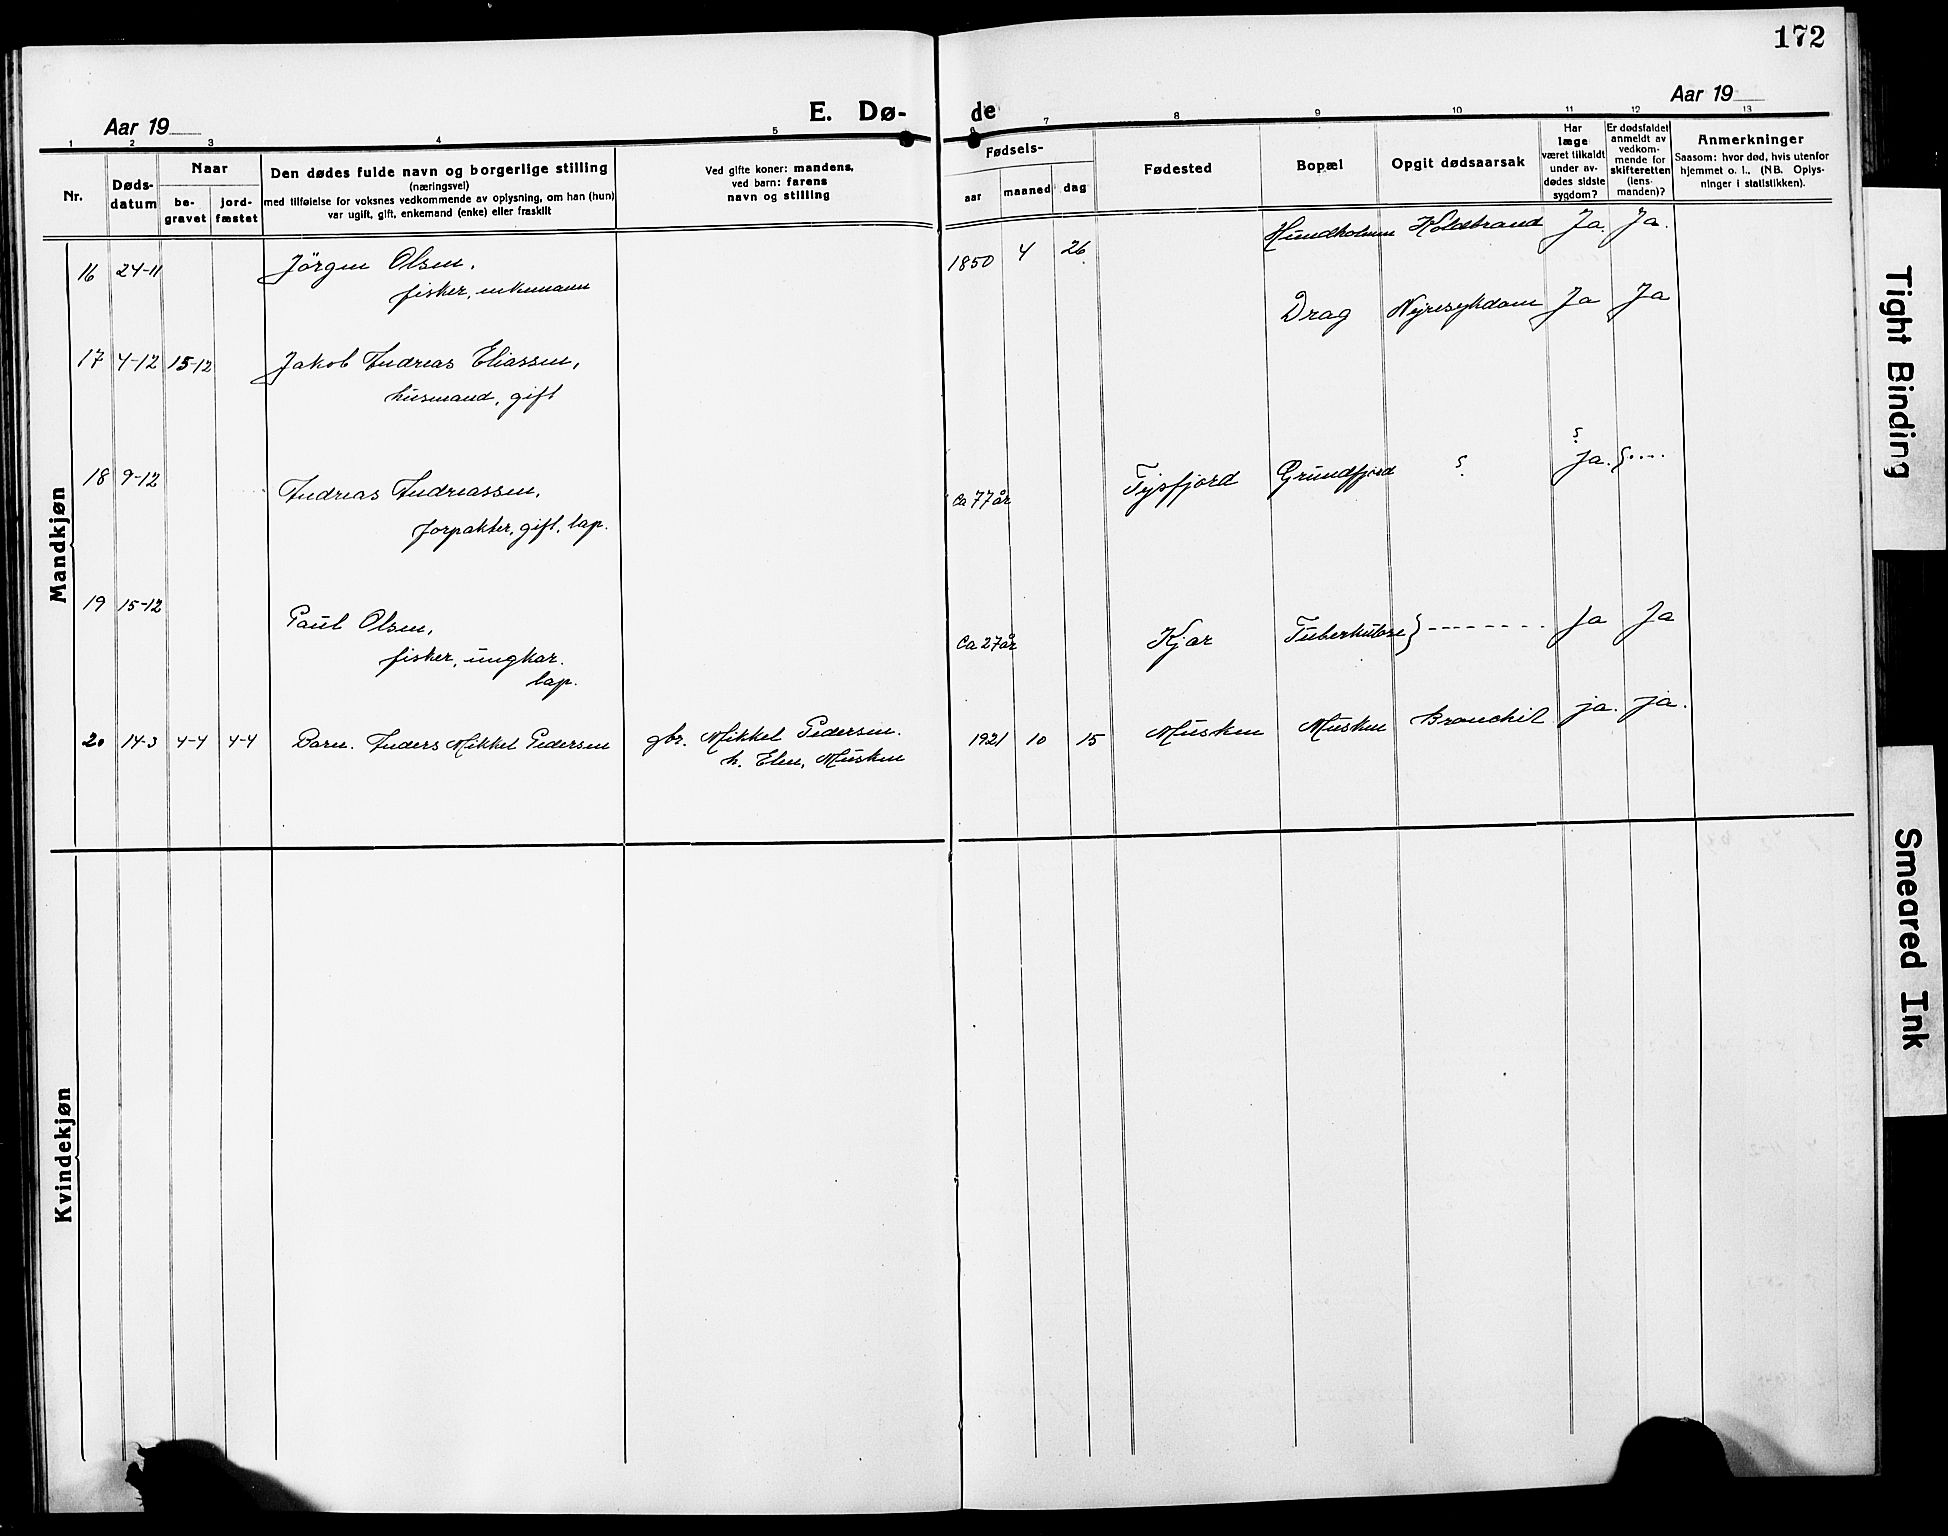 172
Aar 19
E. Dø-
de
Aar 19
1 2 3 4 5 6 7 8 9 10 11 12 13
Nr.
Døds-
datum
Naar
be-
gravet
jord-
fæstet
Den dødes fulde navn og borgerlige stilling
(næringsvei)
med tilføielse for voksnes vedkommende av oplysning, om han (hun)
var ugift, gift, enkemand (enke) eller fraskilt
Ved gifte koner: mandens,
ved barn: farens
navn og stilling
Fødsels-
aar
maaned
dag
Fødested
Bopæl
Opgit dødsaarsak
Har
læge
været tilkaldt
under av-
dødes sidste
sygdom?
Er dødsfaldet
anmeldt av
vedkom-
mende for
skifteretten
(lens-
manden)?
Anmerkninger
Saasom: hvor død, hvis utenfor
hjemmet o. l.. (NB. Oplys-
ninger i statistikken).
Mandkjøn
16 24-11 Jörgen Olsen, 1850 4 26 Hundholmen Koldbrand Ja. Ja.
fisker, enkemann
17 4-12 15-12 Jakob Andreas Eliassen, Drag Nyresykdom Ja Ja
husmand, gift
18 9-12 Andreas Andreassen, Ca 77 år Tysfjord Grundfjord ? ? ja.
forpakter, gift, lap.
19 15-12 Paul Olsen, Ca 27 år Kjär Tuberkulose Ja Ja
fisker, ungkar.
lap.
20 14-3 4-4 4-4 Barn. Anders Mikkel Pedersen gbr. Mikkel Pedersen. 1921 10 15 Musken Musken Bronchit ja. ja.
h. Elen, Musken
Kvindekjøn
Tight Binding
Smeared Ink